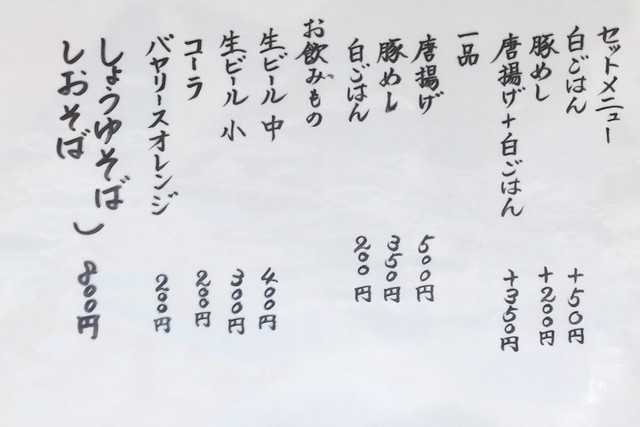 セットメニュー
白ごはん +50円
豚めし +200円
唐揚げ+白ごはん +350円
一品
唐揚げ 500円
豚めし 350円
白ごはん 200円
お飲みもの
生ビール 中 400円
生ビール 小 300円
コーラ 200円
バヤリースオレンジ 200円
しょうゆそば
しおそば
800円